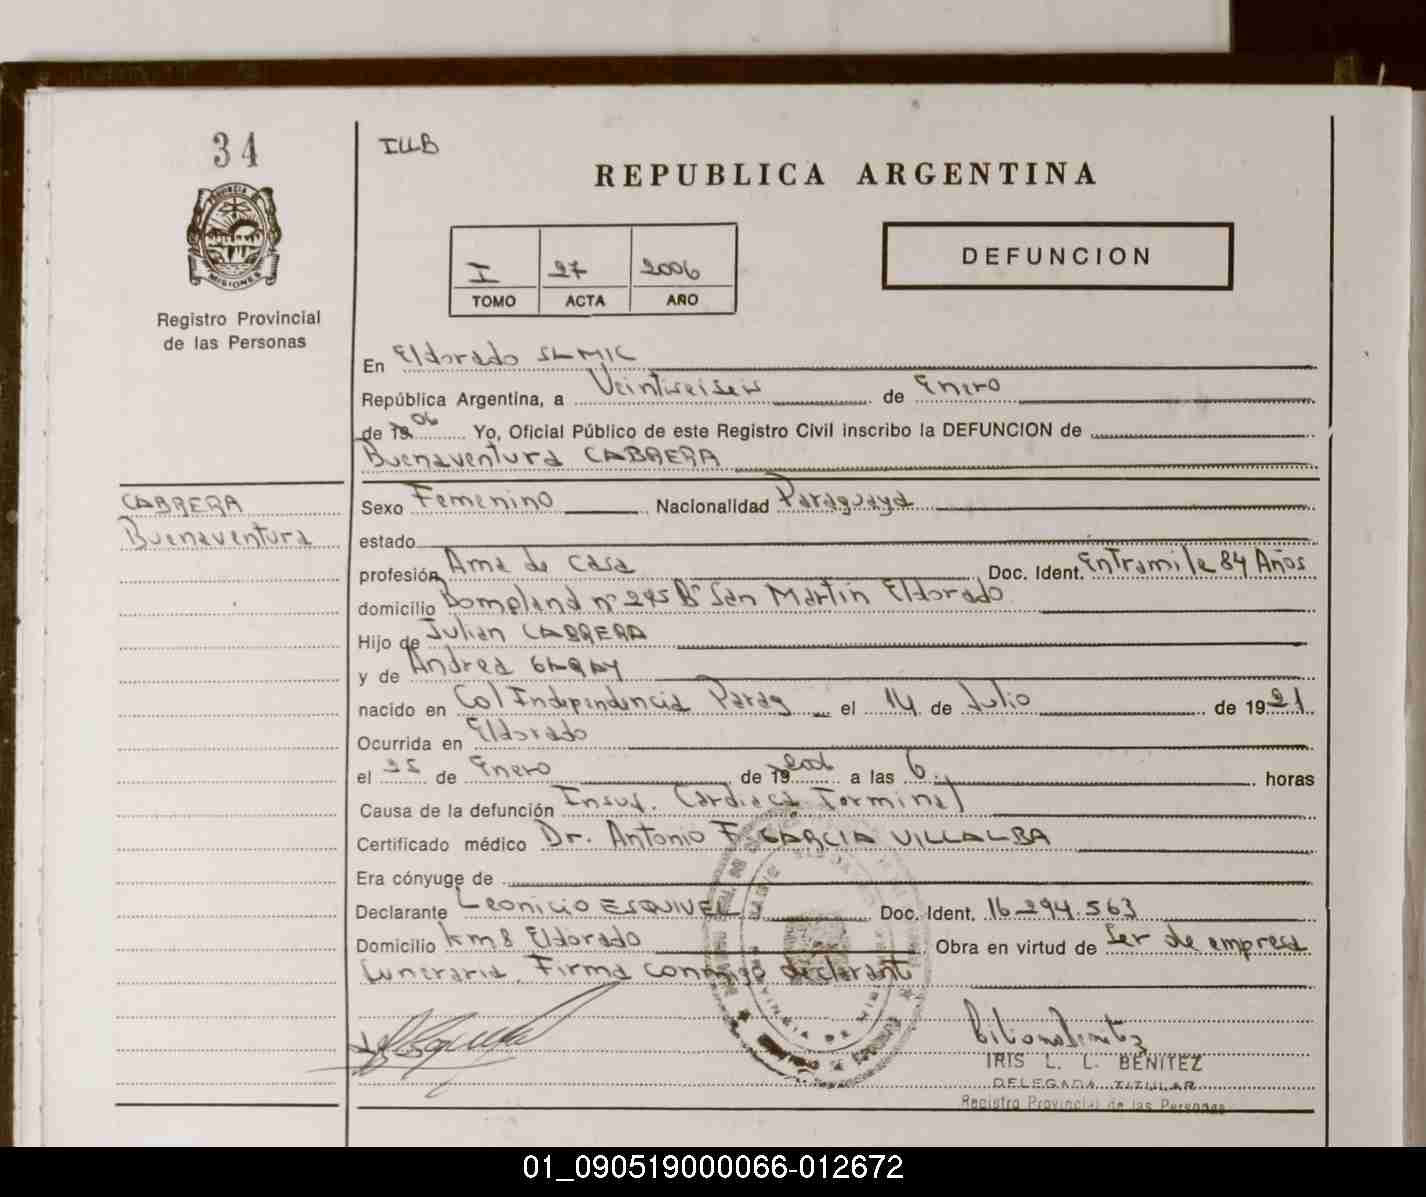 34
ILLB
REPUBLICA ARGENTINA
PROVINCIA DE
MISIONES
I 27 2006
TOMO ACTA AÑO
DEFUNCION
Registro Provincial
de las Personas
En Eldorado SL MIC
República Argentina, a Veintiseiseis de Enero
de 19 06 Yo, Oficial Público de este Registro Civil inscribo la DEFUNCION de
Buenaventura CABRERA
CABRERA
Buenaventura
Sexo Femenino Nacionalidad Paraguaya
estado
profesión Ama de casa Doc. Ident. Entramite 84 Años
domicilio Bompland nº 245 Bº San Martin Eldorado
Hijo de Julian CABRERA
y de Andrea GARAY
nacido en Col Independencia Parag el 14 de Julio de 1921
Ocurrida en Eldorado
el 25 de Enero de 19 2006 a las 6 horas
Causa de la defunción Insuf. Cardiaca Terminal
Certificado médico Dr. Antonio F. GARCIA VILLALBA
Era cónyuge de
Declarante Leonicio ESQUIVEL Doc. Ident. 16.294.563
Domicilio km 8 Eldorado Obra en virtud de Ser de empresa
funeraria. Firma conmigo declarant
IRIS L. L. BENITEZ
DELEGADA TITULAR
Registro Provincial de las Personas
01_090519000066-012672